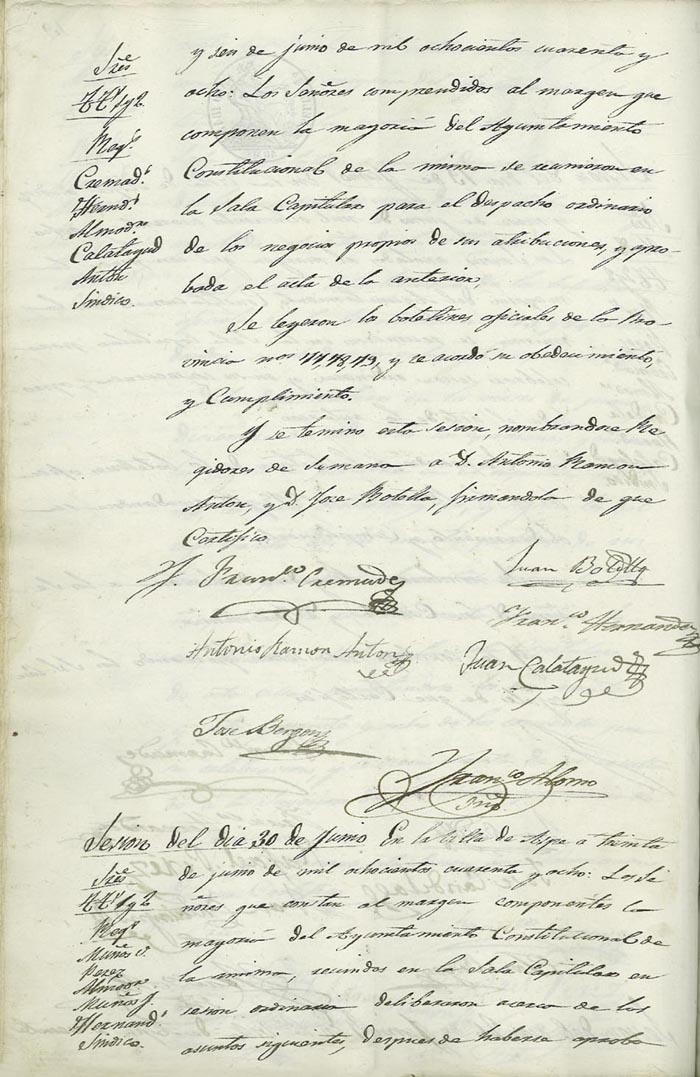 y seis de junio de mil ochocientos cuarenta y
ocho: Los Señores comprendidos al margen que
componen la mayoria del Ayuntamiento
Constitucional de la misma se reunieron en
la Sala Capitular para el despacho ordinario
de los negocios propios de sus atribuciones, y apro-
bada el acta de la anterior,
Se leyeron los boletines oficiales de la Pro-
vincia nos 47,48,49, y se acordó su obedecimiento,
y Cumplimiento.
Y se termino esta sesion, nombrandose Re-
gidores de Semana a D. Antonio Ramon
Anton, y D. Jose Botella, firmandola de que
Certifico
Sres
Regs
Cremads
Hernands
Almodr
Calatayud
Anton
Sindico.
Franco Cremades
Juan Botella
Franco Hernandez
Antonio Ramon Anton
Juan Calatayud
Jose
Franco Alonso
Srio
Sesion del dia 30 de Junio En la Villa de Aspe a treinta
de junio de mil ochocientos cuarenta y ocho: Los Se-
ñores que constan al margen componentes la
mayoria del Ayuntamiento Constitucional de
la misma, reunidos en la Sala Capitular en
sesion ordinaria deliberaron acerca de los
asuntos siguientes, despues de haberse aproba
Sres
Regs
Muños
Perez
Almodr
Muños J.
Hernands
Sindico.